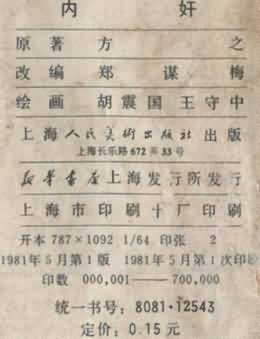 内 奸
原著 方之
改编 郑谋梅
绘画 胡震国 王守中
上海人民美術出版社出版
上海长乐路 672 弄 33 号
新华书店上海发行所发行
上海市印刷十厂印刷
开本 787×1092 1/64 印张 2
1981年5月第1版 1981年5月第1次印刷
印数 000,001——700,000
统一书号: 8081·12543
定价: 0.15 元